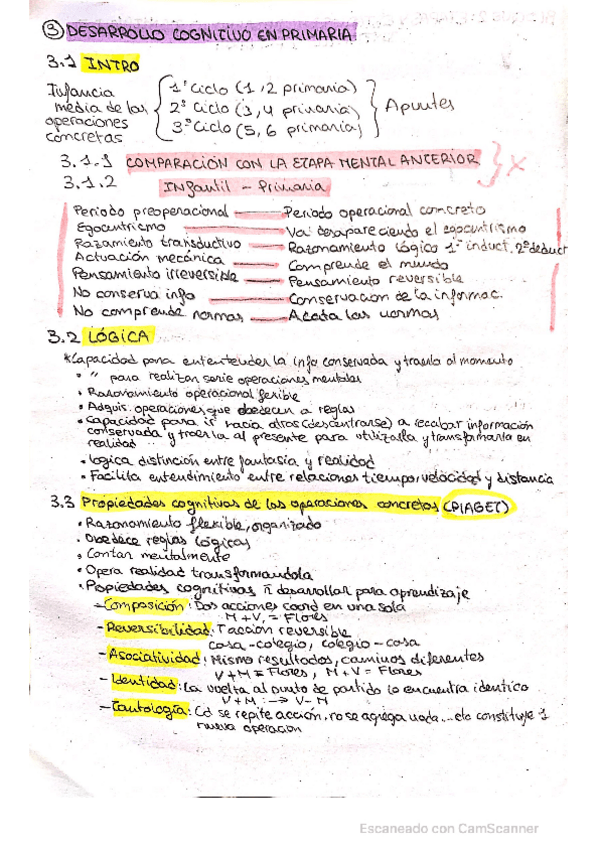 ③ DESARROLLO COGNITIVO EN PRIMARIA
3.1 INTRO
Infancia media de las operaciones concretas
1º Ciclo (1, 2 primaria)
2º Ciclo (3, 4 primaria)
3º Ciclo (5, 6 primaria)
Apuntes
3.1.1 COMPARACIÓN CON LA ETAPA MENTAL ANTERIOR X
3.1.2 INFantil - Primaria
Periodo preoperacional — Periodo operacional concreto
Egocentrismo — Va desapareciendo el egocentrismo
Razamiento transductivo — Razonamiento lógico 1º induct. 2º deduct
Actuación mecánica — Comprende el mundo
Pensamiento irreversible — Pensamiento reversible
No conserva info — Conservacion de la informac.
No comprende normas — Acata las normas
3.2 LÓGICA
*Capacidad para ententender la info conservada y traerla al momento
• " para realizar serie operaciones mentales
• Razonamiento operacional flexible
• Adquis. operaciones que obedecen a reglas
• Capacidad para ir hacia atras (descentrarse) a recabar información
conservada y traerla al presente para utilizarla y transformarla en
realidad
• Logica distinción entre fantasía y realidad
• Facilita entendimiento entre relaciones tiempo, velocidad y distancia
3.3 Propiedades cognitivas de las operaciones concretas (PIAGET)
• Razonamiento flexible, organizado
• Obedece reglas lógicas
• Contar mentalmente
• Opera realidad transformandola
• Propiedades cognitivas desarrollar para aprendizaje
- Composición: Dos acciones coord en una sola
M + V = Flores
- Reversibilidad: T acción reversible
casa - colegio, colegio - casa
- Asociatividad: Mismo resultados, caminos diferentes
V + M = Flores, M + V = Flores
- Identidad: La vuelta al punto de partido lo encuentra identico
V + M : → V - M
- Tautología: Cd se repite acción, no se agrega nada... constituye 1
nueva operacion
Escaneado con CamScanner